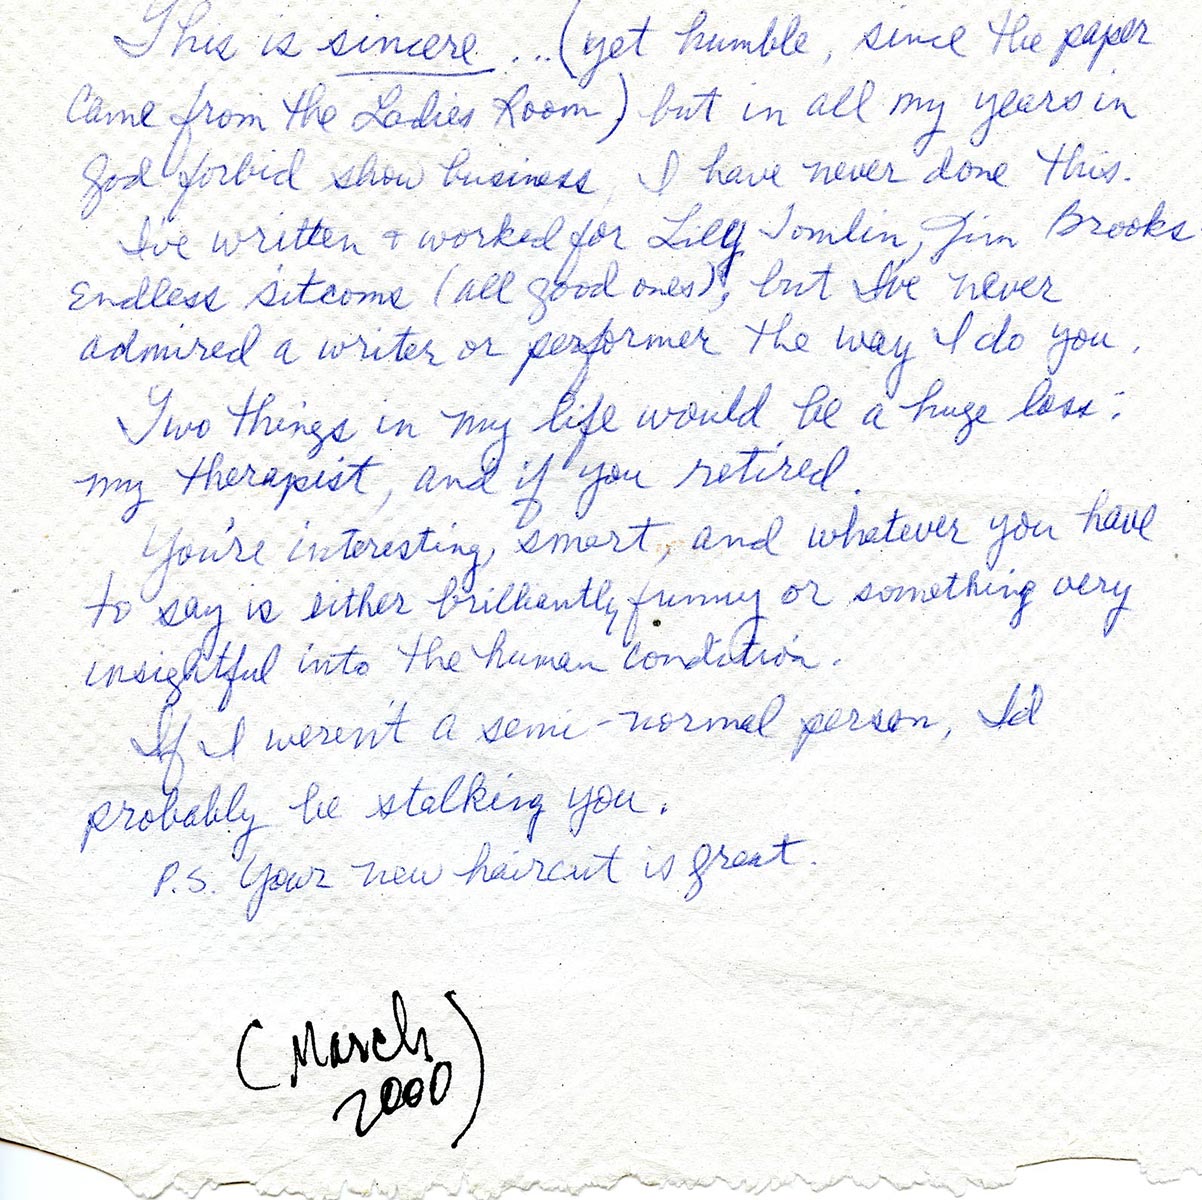 This is sincere ... (yet humble, since the paper
came from the Ladies Room) but in all my years in
god forbid show business, I have never done this.
I've written + worked for Lilly Tomlin, Jim Brooks
endless sitcoms (all good ones), but I've never
admired a writer or performer the way I do you.
Two things in my life would be a huge loss:
my therapist, and if you retired.
You're interesting, smart, and whatever you have
to say is either brilliantly funny or something very
insightful into the human condition.
If I weren't a semi-normal person, I'd
probably be stalking you.
P.S. Your new haircut is great.
(March
2000)